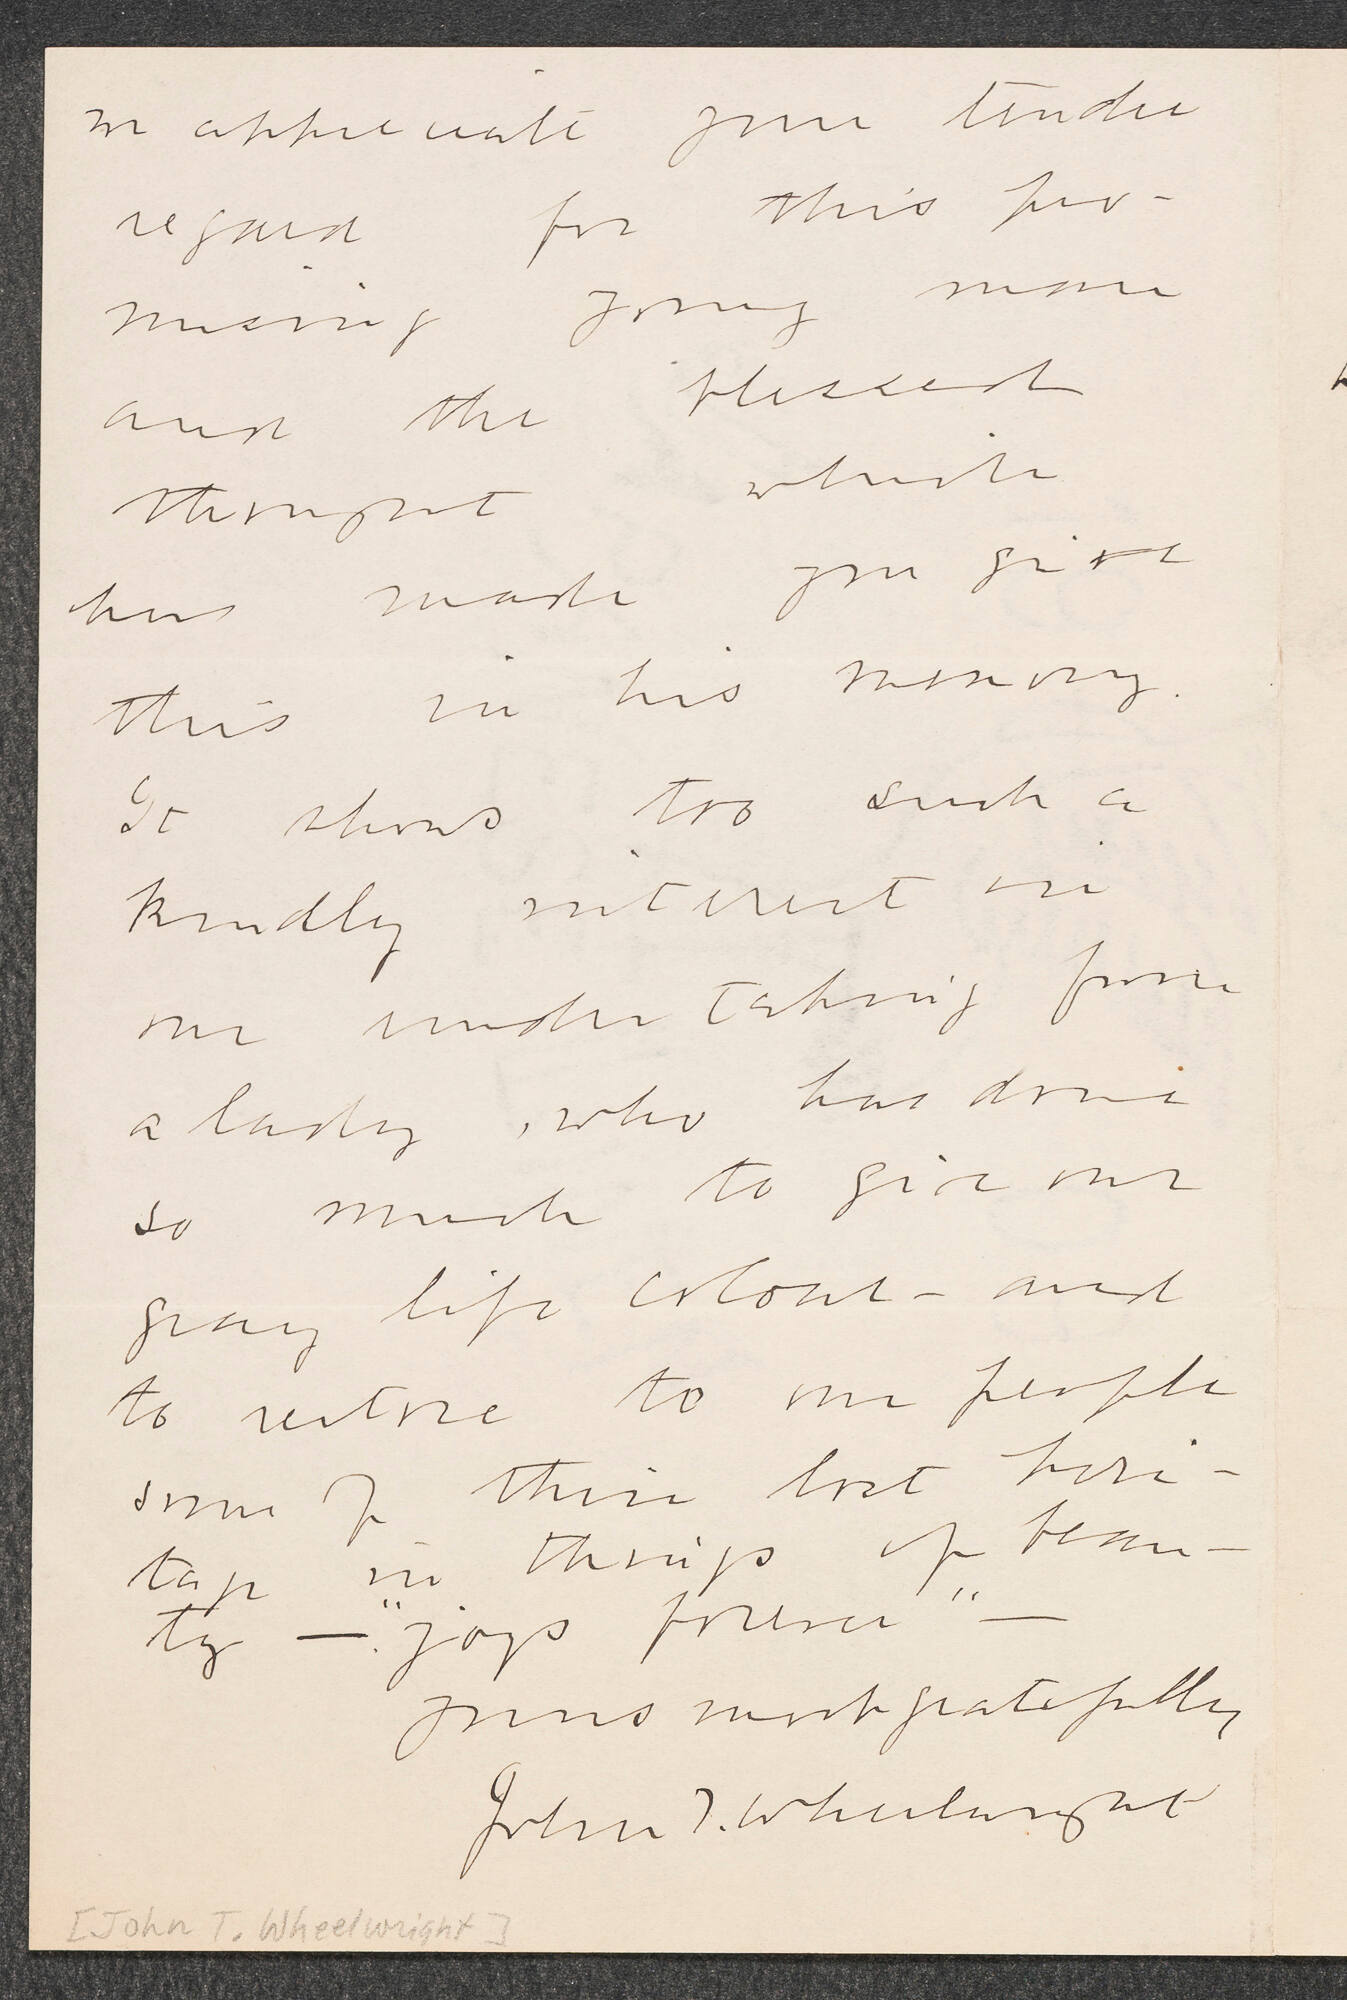 we appreciate your tender
regard for this pro-
missing young man
and the blessed
thought which
has made you give
this in his memory.
It shows too such a
kindly interest in
our undertaking from
a lady, who has done
so much to give our
gray life colour - and
to restore to our people
some of their lost heri-
tage in things of beau-
ty — "joys forever" —
yours most gratefully
John T. Wheelwright
[John T. Wheelwright]